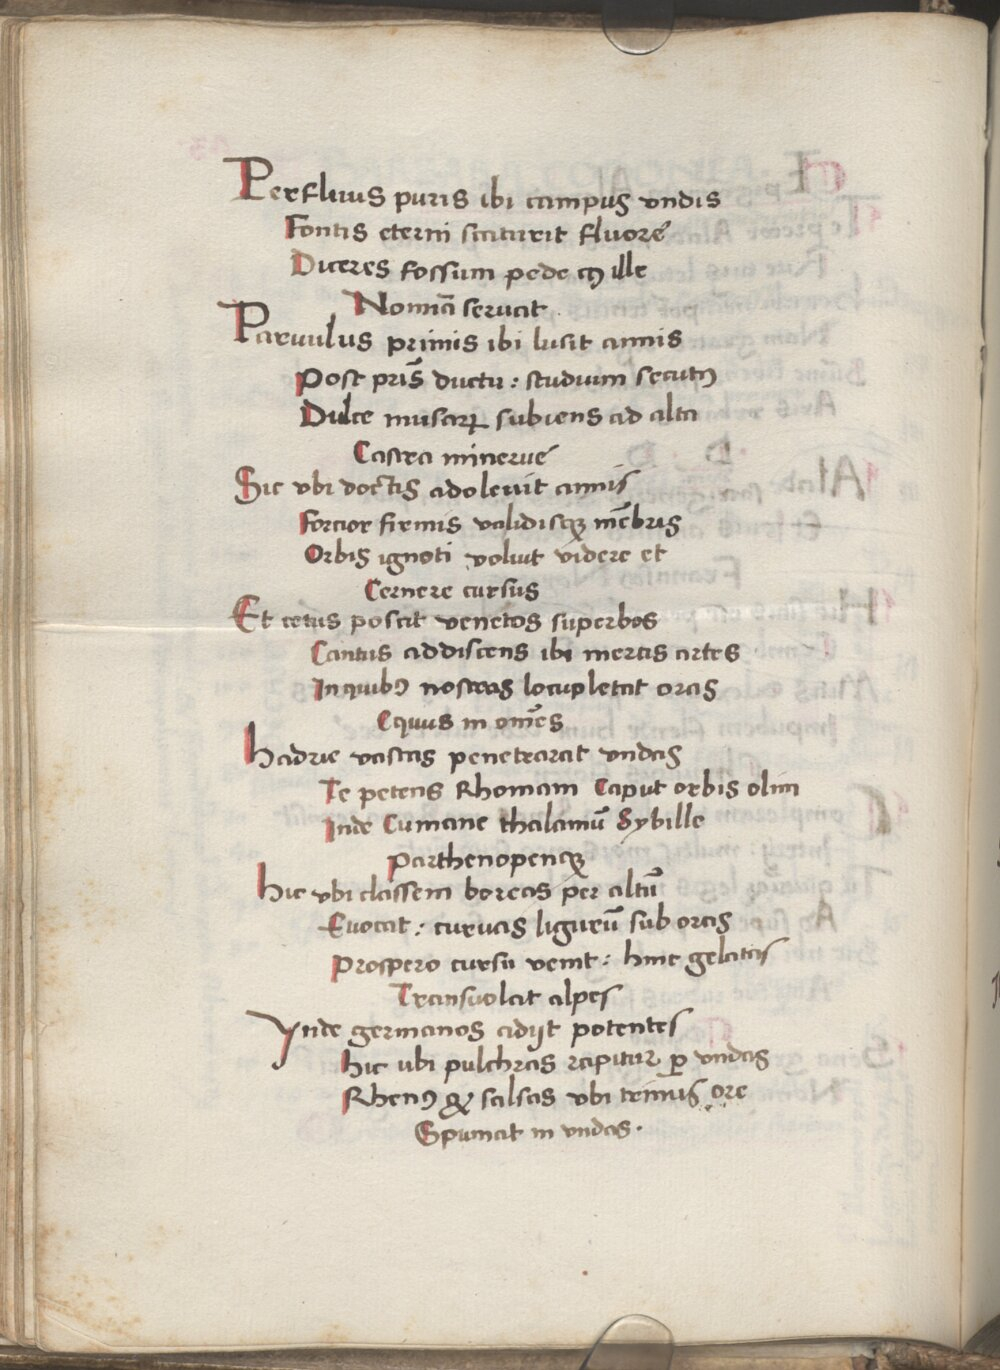 Perfluus puris ibi campus vndis
Fontis eterni scaturit fluore
Diceres fossum pede q; ille
Nomīa seruat
Paruulus primis ibi lusit annis
Post pr̄is ductu: studium secutꝰ
Dulce musarꝝ subiens ad alta
Castra minerue
Sic vbi doctis adoleuit annis
Forcior firmis validisqꝫ mēbris
Orbis ignoti voluit videre et
Cernere cursus
Et cetus poscit venetos superbos
Cautus addiscens ibi mercis artes
In quibꝰ nostras locupletat oras
Equus in om̄es
Hadrie vastas penetrarat vndas
Te petens Rhomam Caput orbis olim
Inde Cumane thalamū Sybille
Parthenopenqꝫ
Hic vbi classem boreas per altū
Euocat: curuas ligurū sub oras
Prospero cursu venit: hinc gelatas
Transuolat alpes
Ynde germanos adijt potentes
Hic ubi pulchras rapitur ꝑ vndas
Rhenꝰ qꝫ salsas vbi trinus ore
Spumat in vndas.